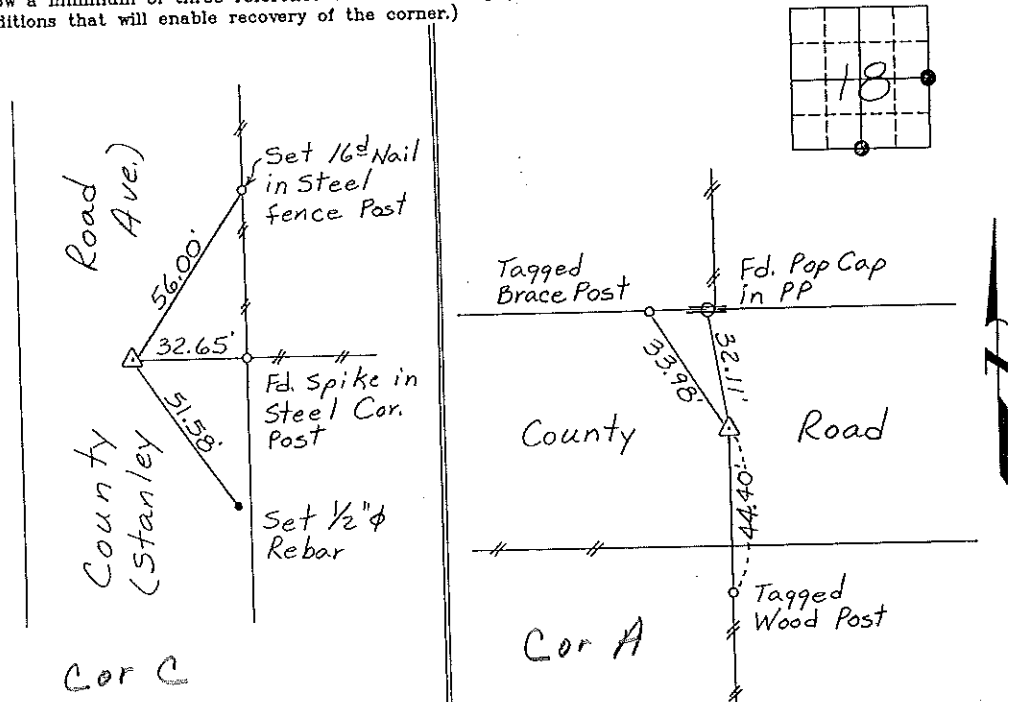 ditions that will enable recovery of the corner.)
18
Road
Ave.)
County
(Stanley
Set 16d Nail
in Steel
fence Post
56.00'
32.65'
51.58'
Fd. Spike in
Steel Cor.
Post
Set 1/2"ϕ
Rebar
Cor C
Tagged
Brace Post
Fd. Pop Cap
in PP
33.98'
32.11'
County Road
44.40'
Tagged
Wood Post
Cor A